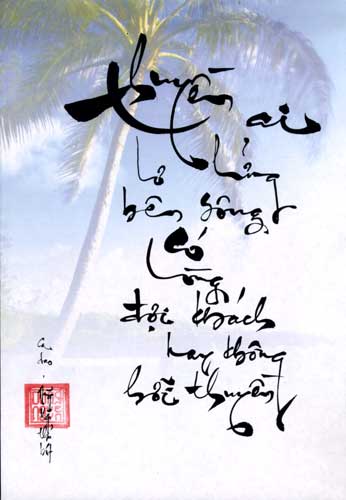 thuyền ai
lơ lửng
bên sông
có
lòng
đợi khách
hay không
hỡi thuyền
Ca
dao